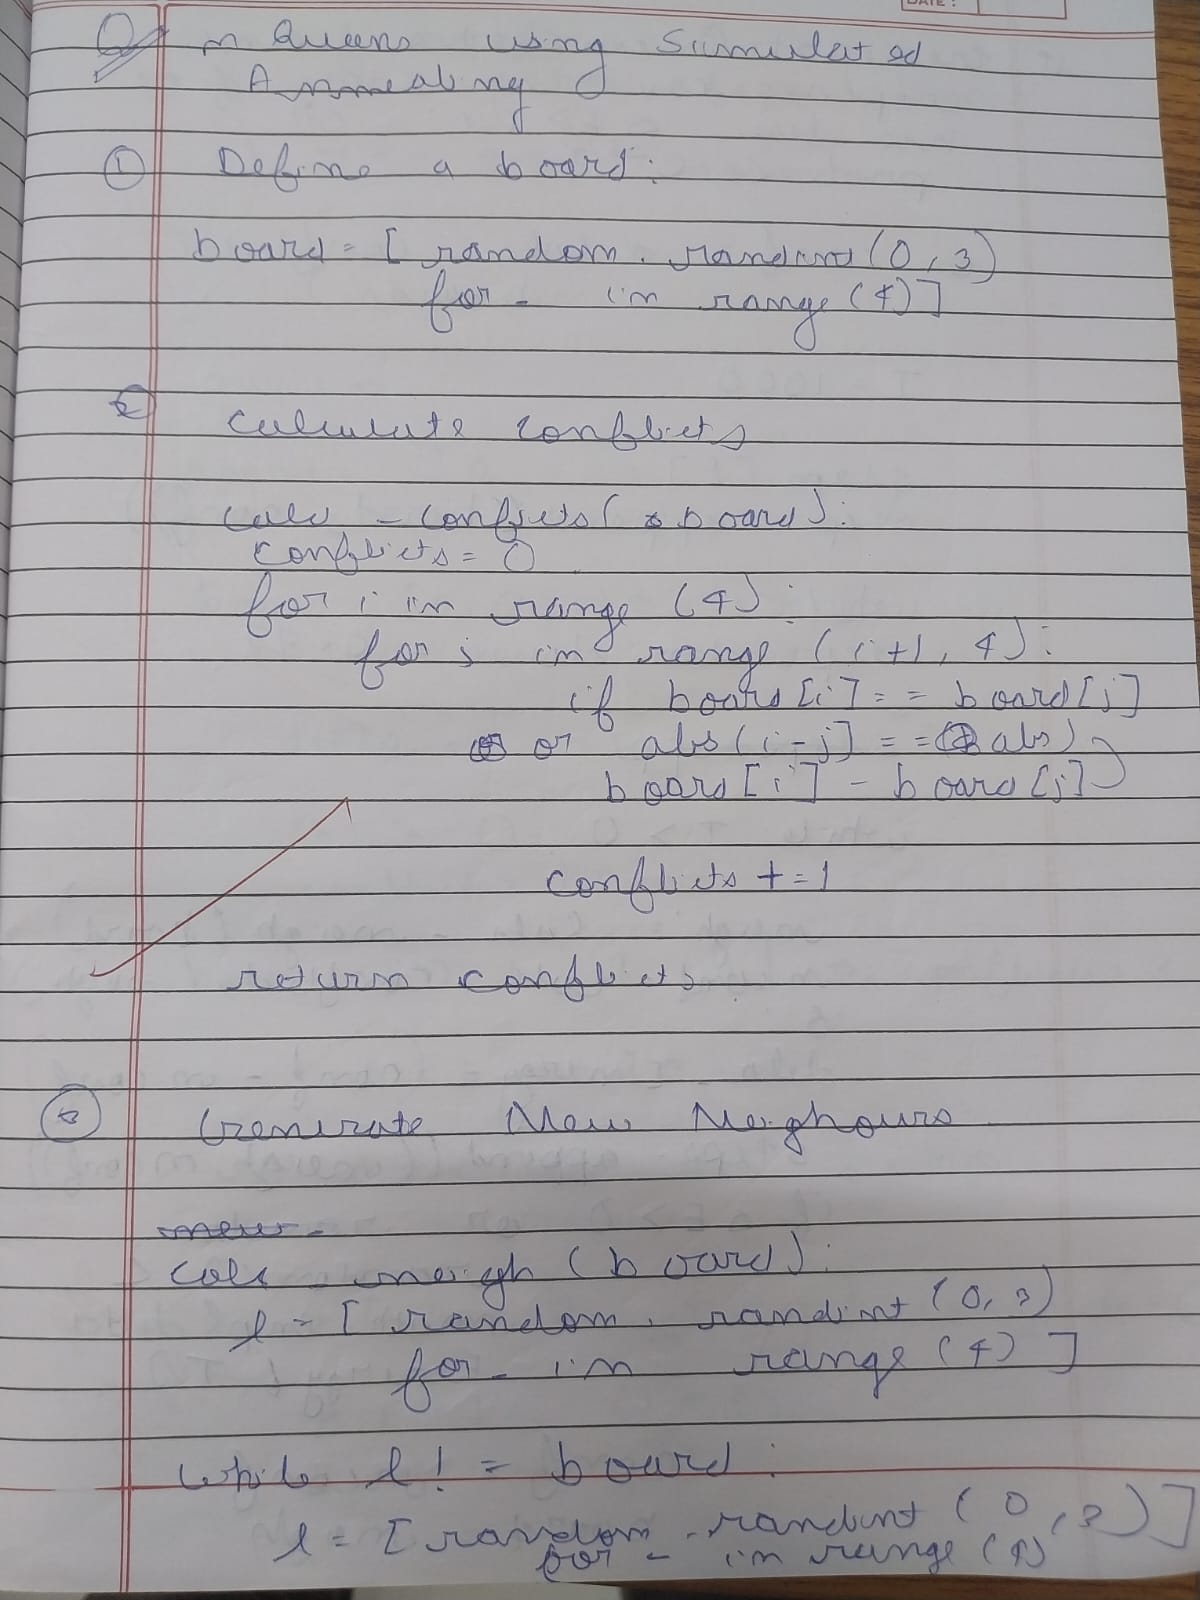 DATE :
Q n Queens using Simulated
Annealing
① Define a board:
board = [ random . randint (0, 3)
for _ in range (4)]
②
Calculate Conflicts
calc _ conflicts( board):
conflicts = 0
for i in range (4):
for j in range (i+1, 4):
if board [i] == board [j]
or abs (i-j] == (abs)
board [i] - board [j])
conflicts += 1
return conflicts
③ Generate New Neighours
new -
calc _ neigh (board):
l = [ random . randint (0, 3)
for _ in range (4) ]
while l != board :
l = [ random . randint ( 0 , 3 ) ]
for _ in range (4)